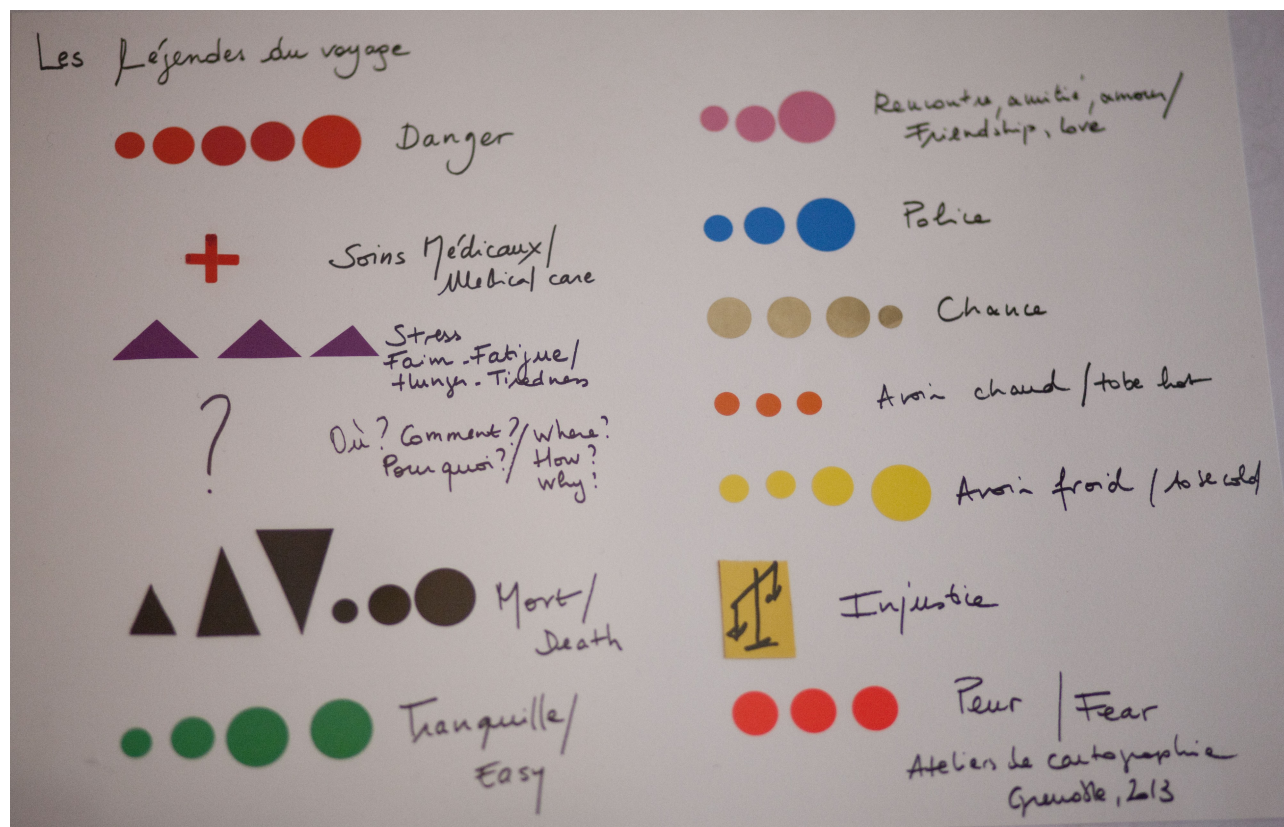 Les Légendes du voyage
Danger
Soins Médicaux/
Medical care
Stress
Faim - Fatigue/
Hunger - Tiredness
?
Où? Comment?/ Where?
Pourquoi?/ How?
Why?
Mort/
Death
Tranquille/
Easy
Rencontre, amitié, amour/
Friendship, love
Police
Chance
Avoir chaud / to be hot
Avoir froid / to be cold
Injustice
Peur | Fear
Ateliers de cartographie
Grenoble, 2013